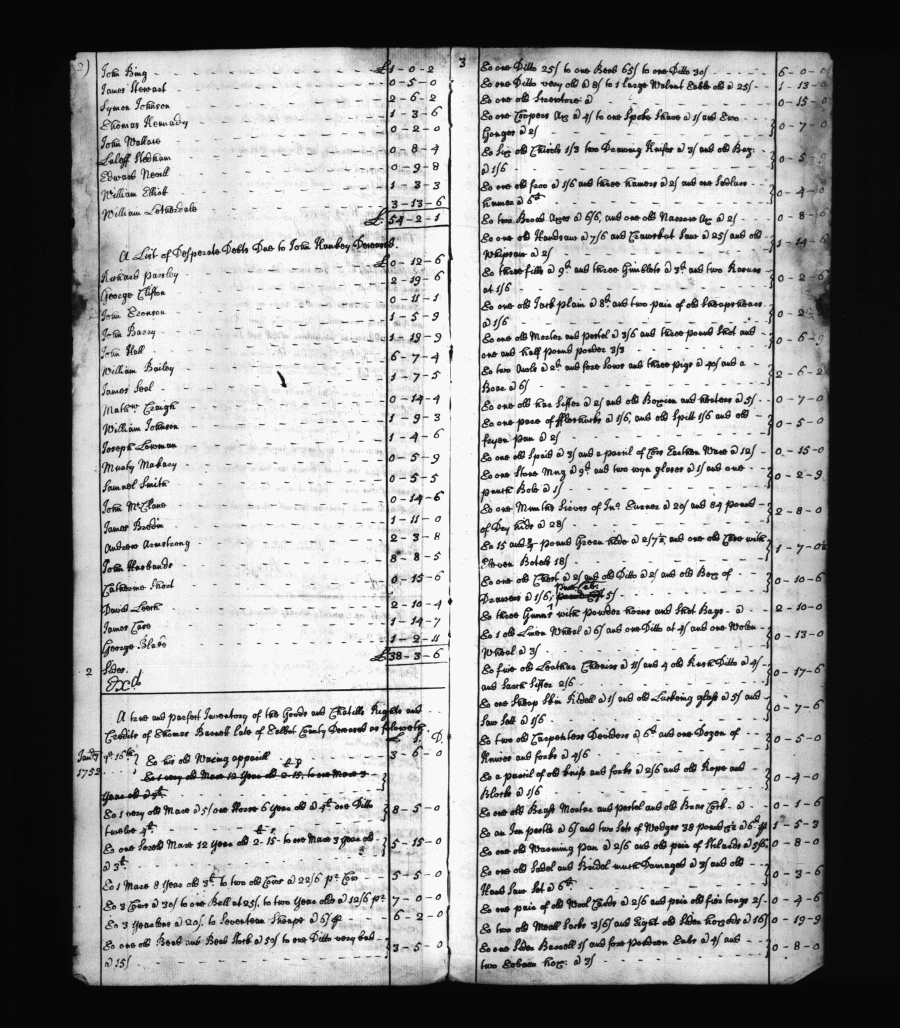 2)
John Bing - - - £1-0-2
James Stewart - - - 0-5-0
Symon Johnson - - - 2-6-2
Thomas Kennady - - - 1-3-6
John Wallace - - - 0-2-0
- - - 0-8-4
Edward Nevill - - - 0-9-8
William Elliot - - - 1-3-3
William - - - 3-13-6
£54-2-1
A List of Desperate Debts Due to John Hanbey Deceased.
Richard Parsley - - - £0-12-6
George Clifton - - - 2-19-6
John - - - 0-11-1
John Barry - - - 1-5-9
John Hall - - - 1-19-9
William Bailey - - - 6-7-4
James - - - 1-7-5
Mathw Craigh - - - 0-14-4
William Johnson - - - 1-9-3
Joseph Lowman - - - 1-4-6
- - - 0-5-9
Samuel Smith - - - 0-5-5
John McClane - - - 0-14-6
James - - - 1-11-0
Andrew Armstrong - - - 2-3-8
John Husbands - - - 8-8-5
Catherine Short - - - 0-15-6
David - - - 2-10-4
James - - - 1-14-7
George - - - 1-2-11
2 Sides. £38-3-6
Exd
A true and perfect Inventory of the Goods and Chatills Rights and
Credits of Thomas Barnett late of Talbot County Deceased as followeth
£ S. D.
ye 16th To his old Waring apparill - - 3-6-0
1752
To 1 very old Mare 12 Year old 2-15, to one Mare 3
Year old a 3£
To 1 very old Mare a 5/ one Horse 6 Year old a 4£ one Ditto
twelve 4£ } 8-5-0
To one Sorold Mare 12 Year old 2-15- to one Mare 3 year old
a 3£ } 5-15-0
To 1 Mare 8 Year old 3£ to two old Cows a 22/6 pr Cow - 5-5-0
To 3 Cows a 30/ to one Bull at 25/. to two Year olds a 12/6 pr - 7-0-0
To 3 Yearlins a 20/. to Seventeen Sheepe a 6/ - 6-2-0
To one old Bed and Bed Stock a 50/ to one Ditto very bad
a 15/ } 3-5-0
3
To one Ditto 25/ to one Bed 65/ to one Ditto 30/ - - 6-0-0
To one Ditto very old a 8/ to 1 large Walnut Table old a 25/ - 1-13-0
To one old a - - 0-15-0
To one Coopers Ax a 4/ to one Spoke Shave a 1/ and Two
Gouges a 2/ } 0-7-0
To Six old Chisels 1/3 two Drawing Knifes a 3/ and old Bag
a 1/6 } 0-5-9
To one old froo a 1/6 and three hamers a 2/ and one
hamer a 6d } 0-4-0
To two Broad Axes a 6/6, and one old Narrow Ax a 2/ 0-8-6
To one old Handsaw a 7/6 and Crawscut Saw a 25/ and old
Whipsaw a 2/ } 1-14-6
To three fills a 9d and three Gimblets a 3d and two
at 1/6 } 0-2-6
To one old Jack Plain a 8d and two pair of old Sheapshears
a 1/6 } 0-2-
To one old Mortor and pestel a 3/6 and three pound Shot and
one and half pound powder 3/3 } 0-6-9
To two a 2d and fore Sows and three pigs a 40/ and a
Boar a 6/ } 2-6-2
To one old hair Siffer a 2/ and old and a 5/ - 0-7-0
To one pare of a 1/6, and old Spitt 1/6 and old
fryen Pan a 2/ } 0-5-0
To one old Spaid a 3/ and a parsil of Cors Earthen Ware a 12/ 0-15-0
To one Stone Mug a 9d and two wyn glases a 1/ and one
punch Bole a 1/ } 0-2-9
To one Months Sirves of Jno Turner a 20/ and 84 pound
of Dry hide a 28/ } 2-8-0
To 15 and 3/4 pound Green hide a 2/7½, and one old Case with
Eleven Botels 18/ } 1-7-0½
To one old Chest a 2/ and old Ditto a 2/ and old Box of
Drawers a 1/6; 5/ } 0-10-6
To three Gunns with Powder horns and Shot Bags - a 2-10-0
To 1 old Linen Wheel a 6/ and one Ditto at 4/ and one Wolen
Wheel a 3/ } 0-13-0
To five old Leathar Cheires a 11/ and 4 old Rush Ditto a 4/
and Siffer 2/6 } 0-17-6
To one Sheap Skin a 1/ and old Lucking glass a 5/ and
Saw Sett a 1/6 } 0-7-6
To two old Carpenters a 6d and one Dozen of
Knives and forks a 4/6
To a parsil of old knifs and forks a 2/6 and old Rope and
Blocks a 1/6 } 0-4-0
To one old Brass Mortar and pestel and old - a 0-1-6
To an Iron pestle a 6/ and two Sets of Wedges 38 pound a 6d 1-5-3
To one old Warming Pan a 2/6 and old pair of Stilards a 5/6 0-8-0
To one old Sadel and Bridel much Damaged a 3/ and old
Hand Saw Set a 6d } 0-3-6
To one pair of old Wool Cards a 2/6 and pair old fire tongs 2/- 0-4-6
To two old Meal Sacks 3/6/ and Eight old Sider hogsods a 16/ 0-19-9
To one Sider Barrell 1/ and fore Tubs a 4/ and
two Tobaco hog: a 3/ } 0-8-0